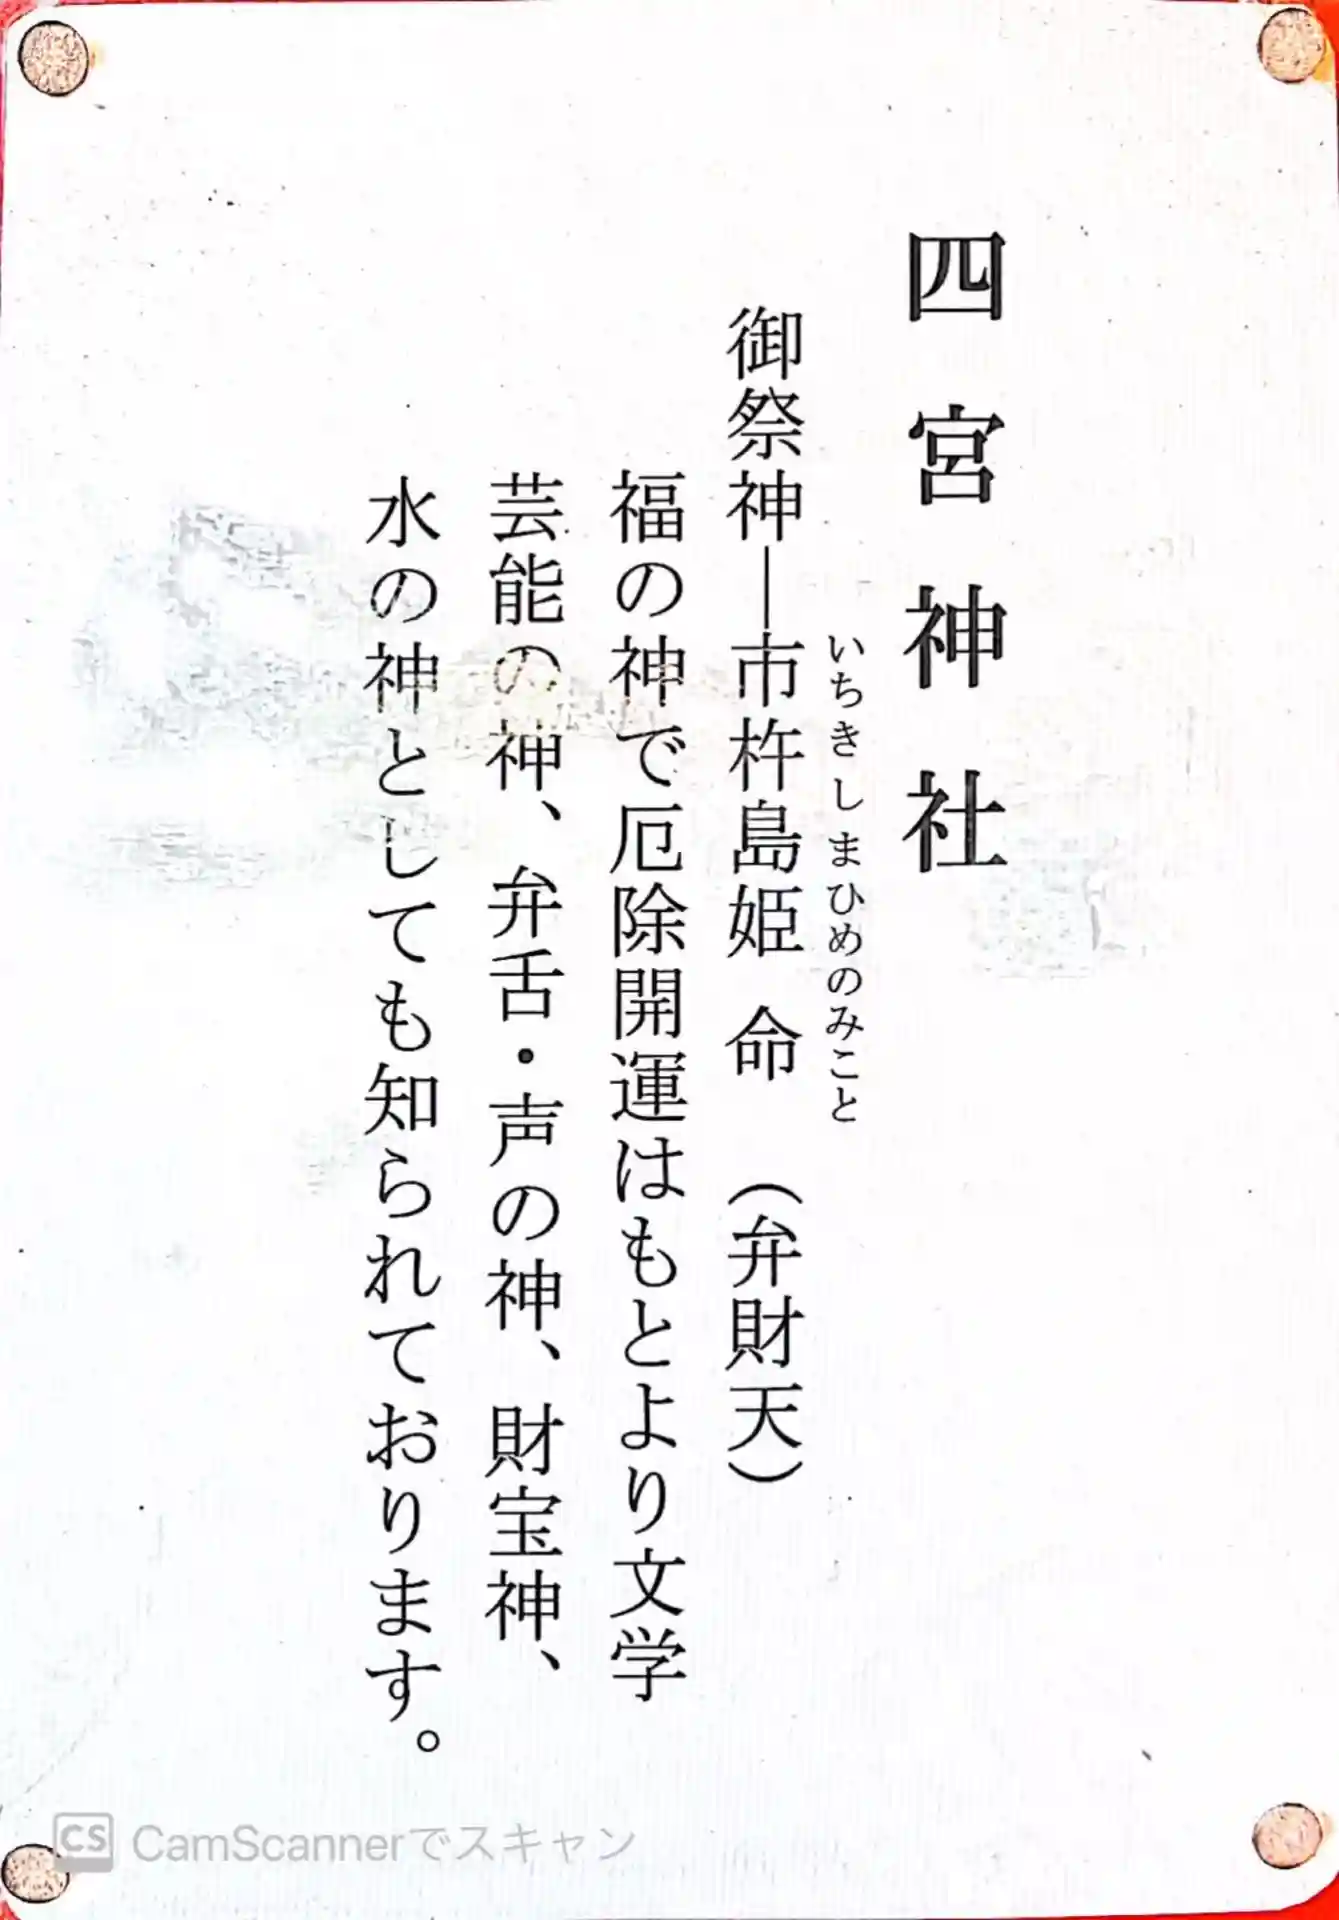 四宮神社
いちきしまひめのみこと
御祭神―市杵島姫 命 （弁財天）
福の神で厄除開運はもとより文学
芸能の神、弁舌・声の神、財宝神、
水の神としても知られております。
CS CamScannerでスキャン